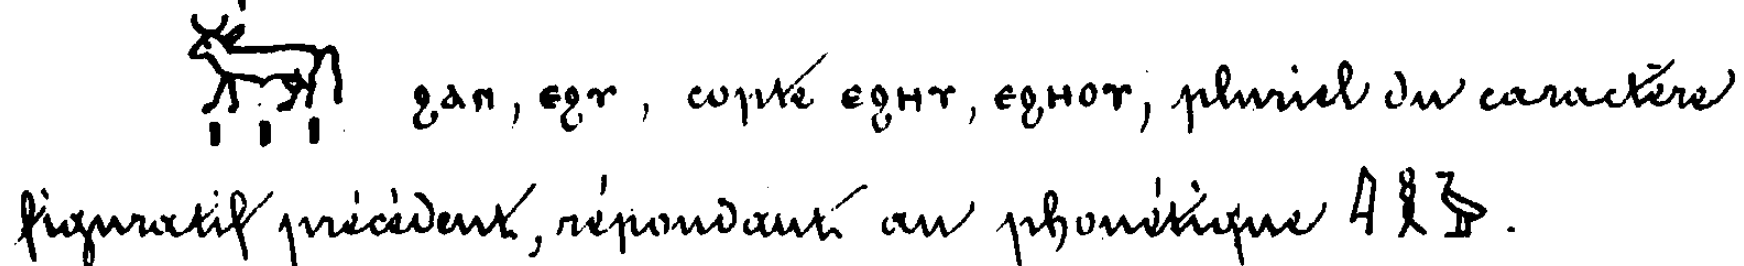 𓃒𓏥 ϩⲁⲡ, ⲉϩⲩ, copte ⲉϩⲏⲩ, ⲉϩⲏⲟⲩ, pluriel du caractère
figuratif précédent, répondant au phonétique 𓇋𓎛𓅱.